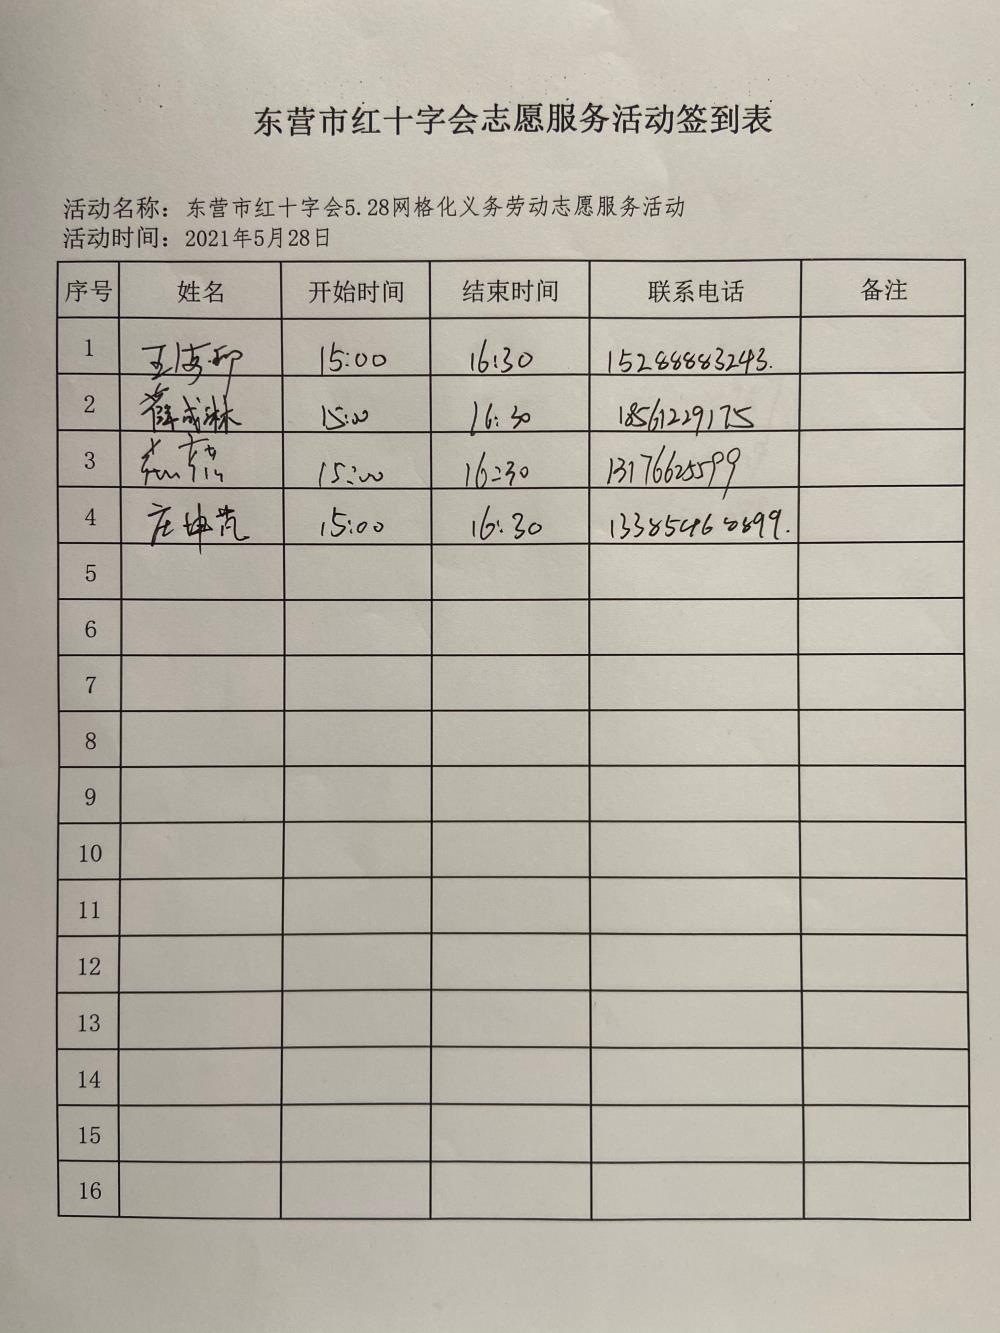 东营市红十字会志愿服务活动签到表
活动名称：东营市红十字会5.28网格化义务劳动志愿服务活动
活动时间：2021年5月28日
序号 姓名 开始时间 结束时间 联系电话 备注
1 王海 15:00 16:30 15288883243.
2 薛成琳 15:00 16:30 18561229175
3 15:00 16:30 13176625599
4 庄坤 15:00 16:30 13385460899.
5
6
7
8
9
10
11
12
13
14
15
16